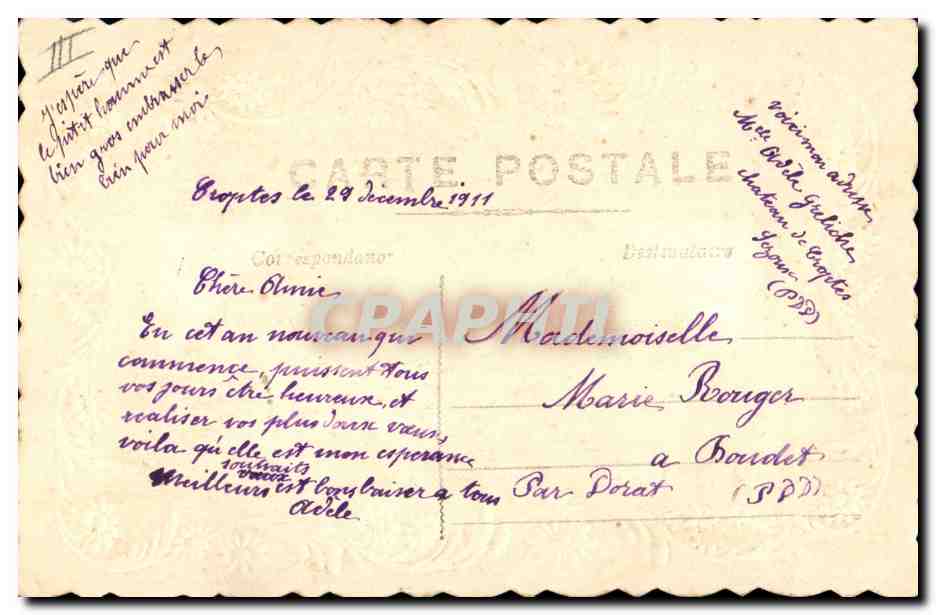 III
J'espère que
le petit homme est
bien gros embrasser le
bien pour moi
CARTE POSTALE
voici mon adresse
Melle Adèle Greliche
chateau de Croptes
Lezoux
(PDD)
Croptes le 29 décembre 1911
Correspondance
Destinataire
Chère Amie
En cet an nouveau qui
commence, puissent tous
vos jours être heureux, et
realiser vos plus doux vœux,
voila qu'elle est mon esperance
souhaits
Meilleurs vœux est bons baiser a tous
Adèle
CPAPHIL
Mademoiselle
Marie Rouger
a Boudet
Par Dorat (PDD)